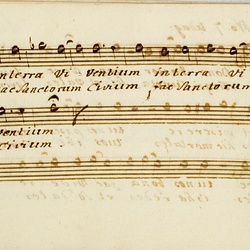 in terra Vi ventium in terra Vi
fac Sanctorum Civium fac Sanctorum
ventium
Civium.